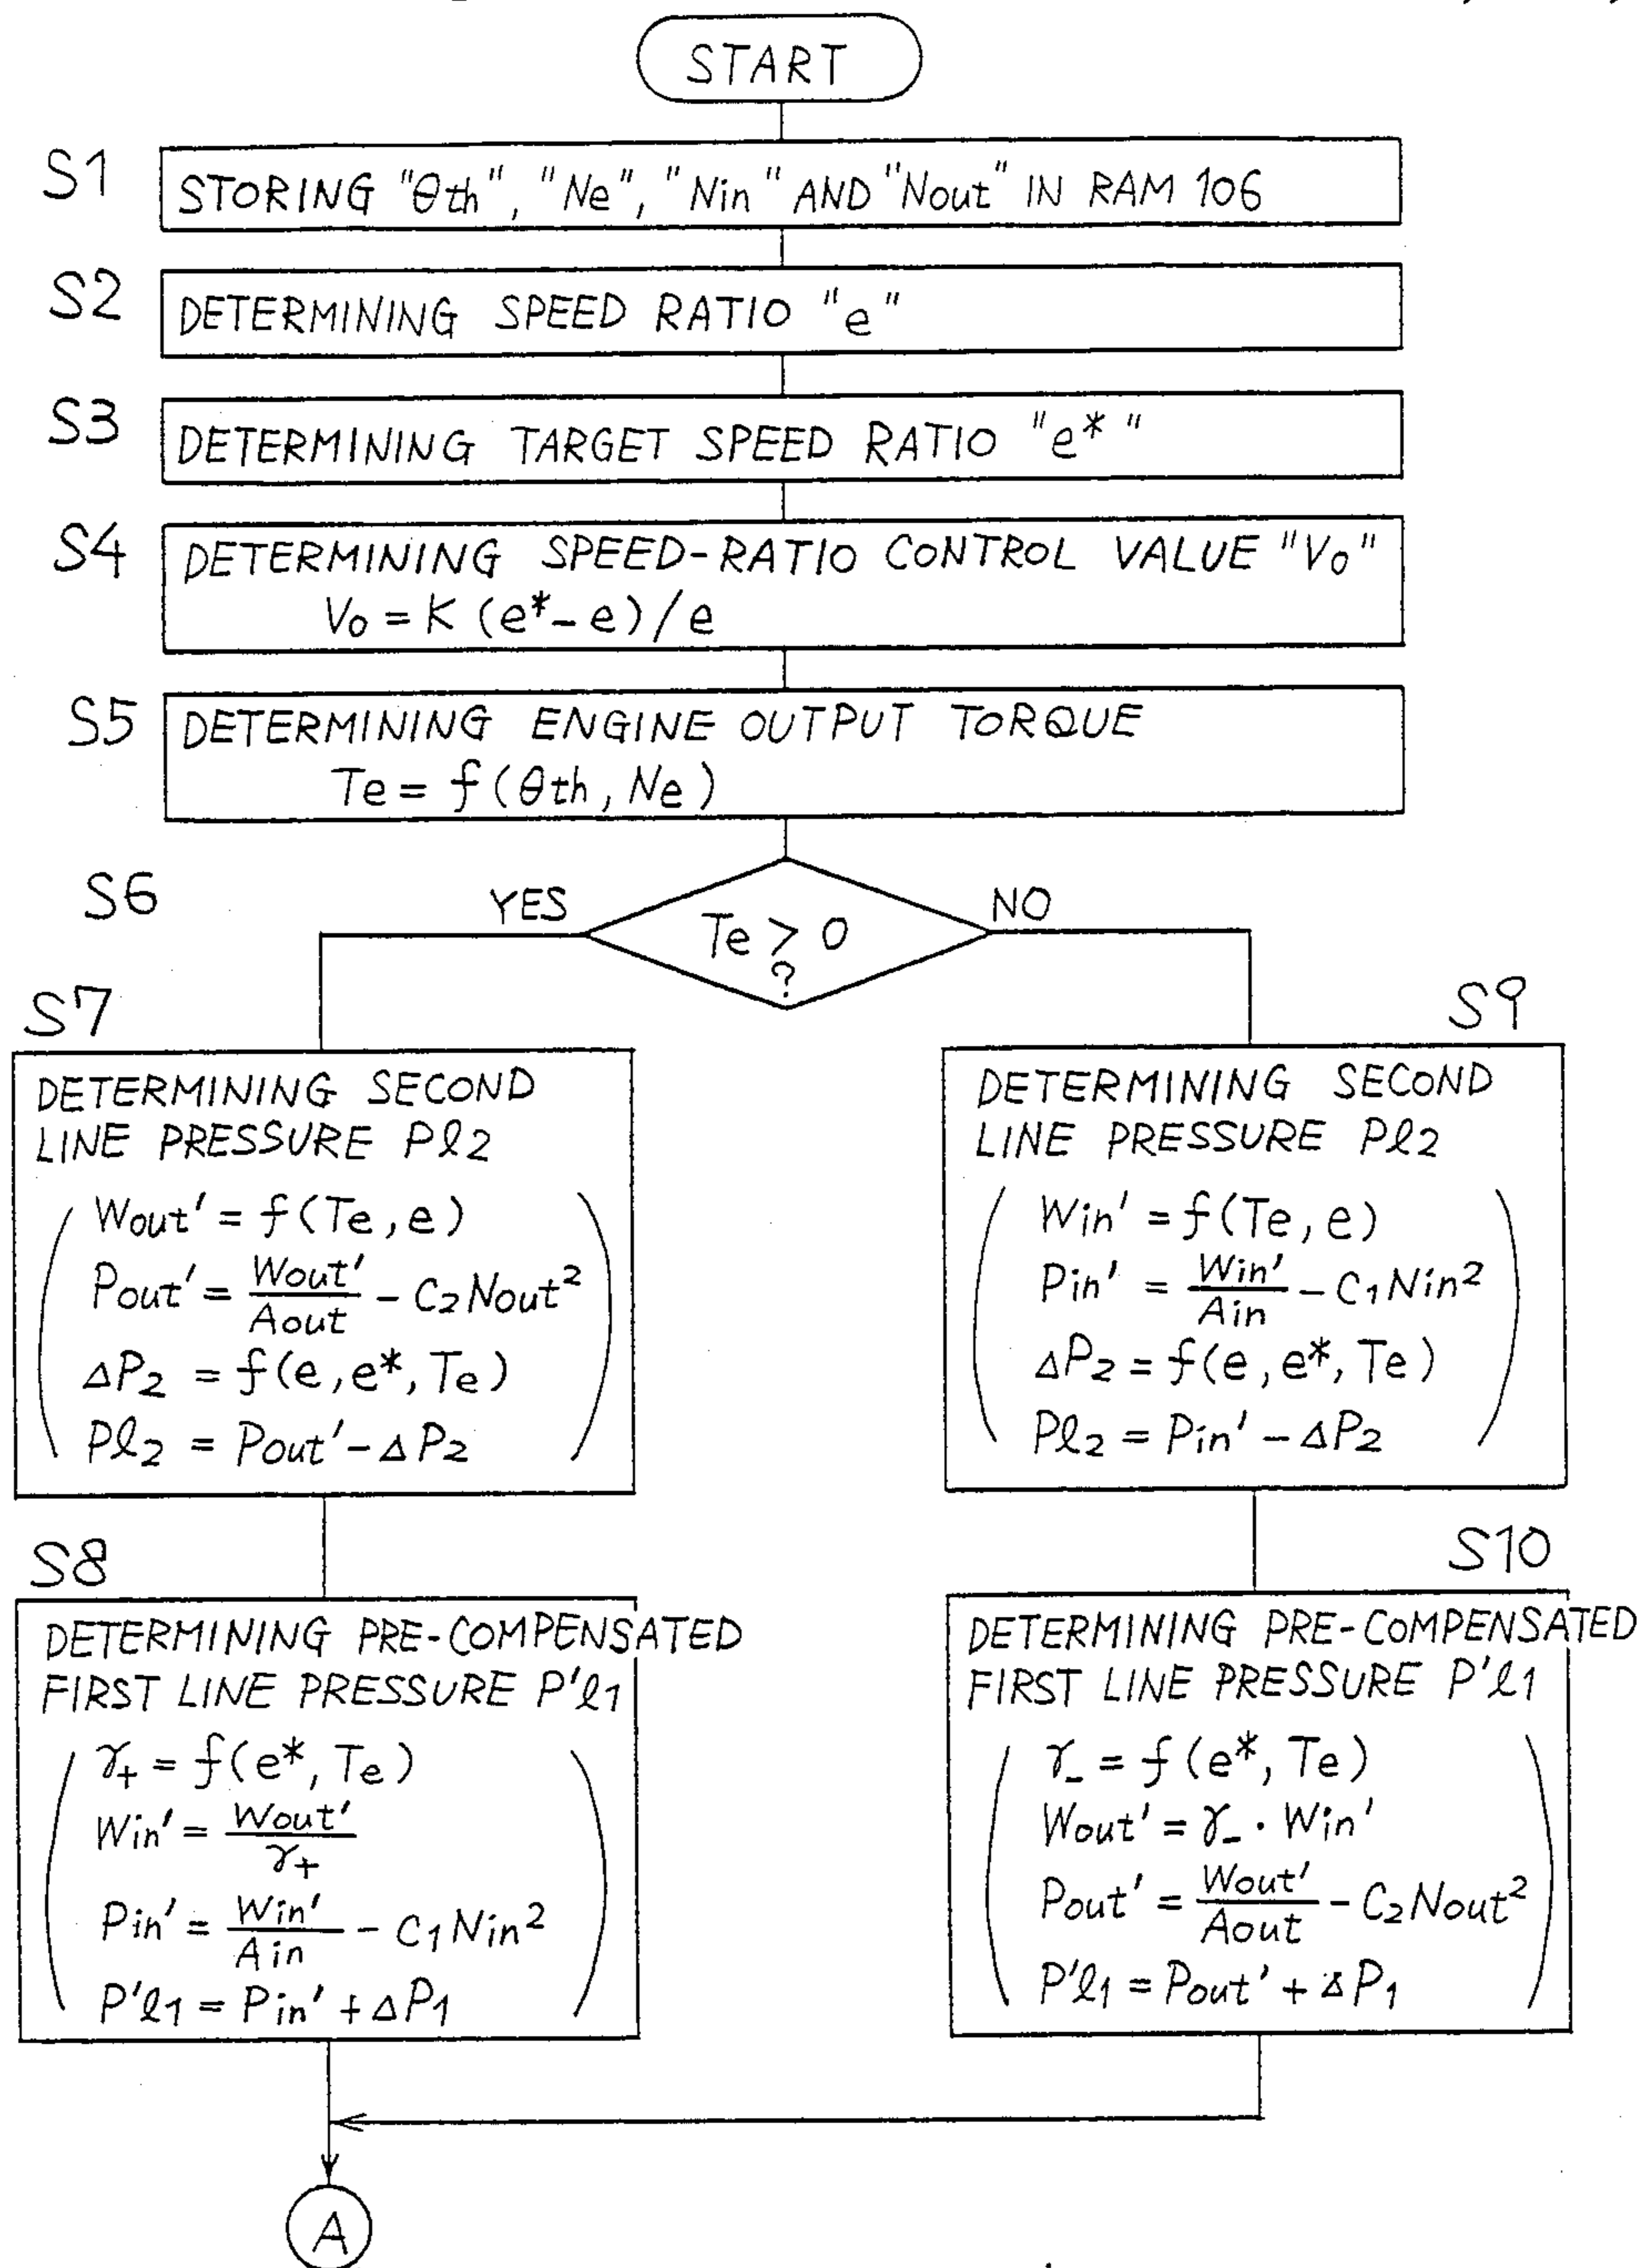 START
S1
STORING "θth", "Ne", "Nin" AND "Nout" IN RAM 106
S2
DETERMINING SPEED RATIO "e"
S3
DETERMINING TARGET SPEED RATIO "e*"
S4
DETERMINING SPEED-RATIO CONTROL VALUE "Vo"
Vo = K (e* - e) / e
S5
DETERMINING ENGINE OUTPUT TORQUE
Te = f (θth, Ne)
S6
YES
Te > 0
?
NO
S7
DETERMINING SECOND
LINE PRESSURE Pℓ2
Wout' = f (Te, e)
Pout' = Wout' / Aout - C2 Nout²
ΔP2 = f (e, e*, Te)
Pℓ2 = Pout' - ΔP2
S8
DETERMINING PRE-COMPENSATED
FIRST LINE PRESSURE P'ℓ1
γ+ = f (e*, Te)
Win' = Wout' / γ+
Pin' = Win' / Ain - C1 Nin²
P'ℓ1 = Pin' + ΔP1
S9
DETERMINING SECOND
LINE PRESSURE Pℓ2
Win' = f (Te, e)
Pin' = Win' / Ain - C1 Nin²
ΔP2 = f (e, e*, Te)
Pℓ2 = Pin' - ΔP2
S10
DETERMINING PRE-COMPENSATED
FIRST LINE PRESSURE P'ℓ1
γ- = f (e*, Te)
Wout' = γ- · Win'
Pout' = Wout' / Aout - C2 Nout²
P'ℓ1 = Pout' + ΔP1
A